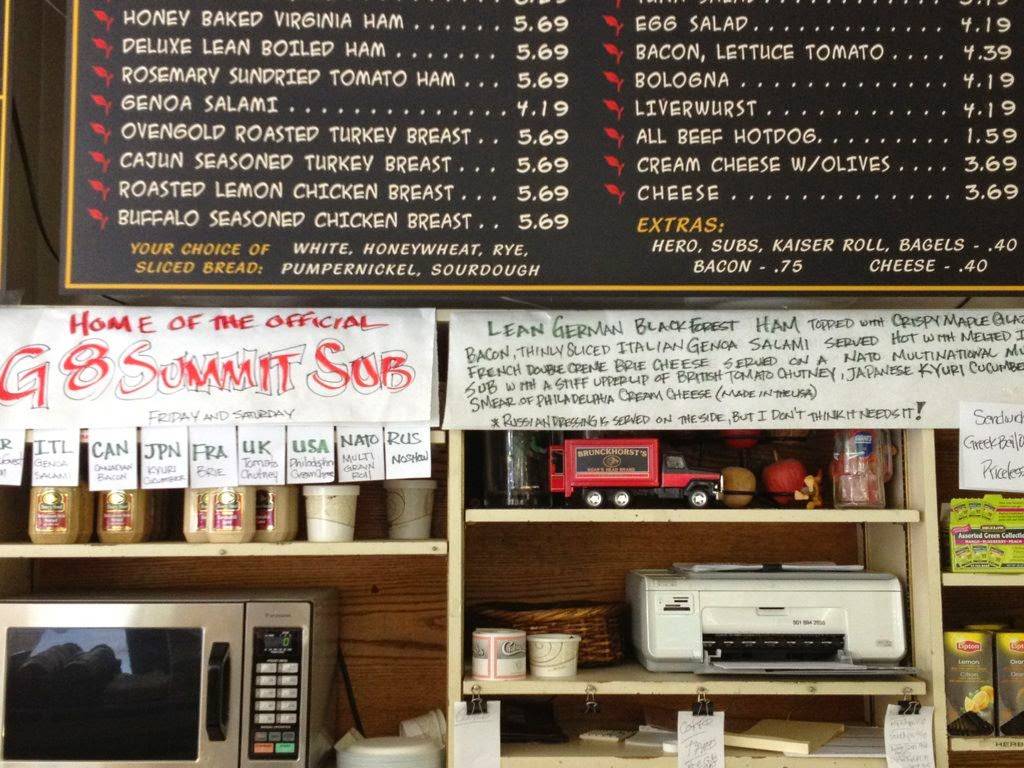 HONEY BAKED VIRGINIA HAM ...... 5.69
DELUXE LEAN BOILED HAM ....... 5.69
ROSEMARY SUNDRIED TOMATO HAM ... 5.69
GENOA SALAMI ................ 4.19
OVENGOLD ROASTED TURKEY BREAST .. 5.69
CAJUN SEASONED TURKEY BREAST ... 5.69
ROASTED LEMON CHICKEN BREAST ... 5.69
BUFFALO SEASONED CHICKEN BREAST .. 5.69
YOUR CHOICE OF SLICED BREAD: WHITE, HONEYWHEAT, RYE,
PUMPERNICKEL, SOURDOUGH
EGG SALAD ............ 4.19
BACON, LETTUCE TOMATO .... 4.39
BOLOGNA ............. 4.19
LIVERWURST ........... 4.19
ALL BEEF HOTDOG........ 1.59
CREAM CHEESE W/OLIVES .... 3.69
CHEESE .............. 3.69
EXTRAS:
HERO, SUBS, KAISER ROLL, BAGELS - .40
BACON - .75 CHEESE - .40
HOME OF THE OFFICIAL
G8 SUMMIT SUB
FRIDAY AND SATURDAY
LEAN GERMAN BLACK FOREST HAM TOPPED WITH CRISPY MAPLE
BACON, THINLY SLICED ITALIAN GENOA SALAMI SERVED HOT WITH MELTED
FRENCH DOUBLE CREME BRIE CHEESE SERVED ON A NATO MULTINATIONAL
SUB WITH A STIFF UPPER LIP OF BRITISH TOMATO CHUTNEY, JAPANESE KYURI
SMEAR OF PHILADELPHIA CREAM CHEESE (MADE IN THE USA)
* RUSSIAN DRESSING IS SERVED ON THE SIDE, BUT I DON'T THINK IT NEEDS IT!
ITL
GENOA
SALAMI
CAN
CANADIAN
BACON
JPN
KYURI
CUCUMBER
FRA
BRIE
UK
Tomato
Chutney
USA
Philadelphia
Cream Cheese
NATO
MULTI
GRAIN
ROLL
RUS
NO SHOW
BRUNCKHORST'S
BOAR'S HEAD BRAND
Priceless
Assorted Green Collection
Panasonic
Lipton
Lemon
Citron
Lipton